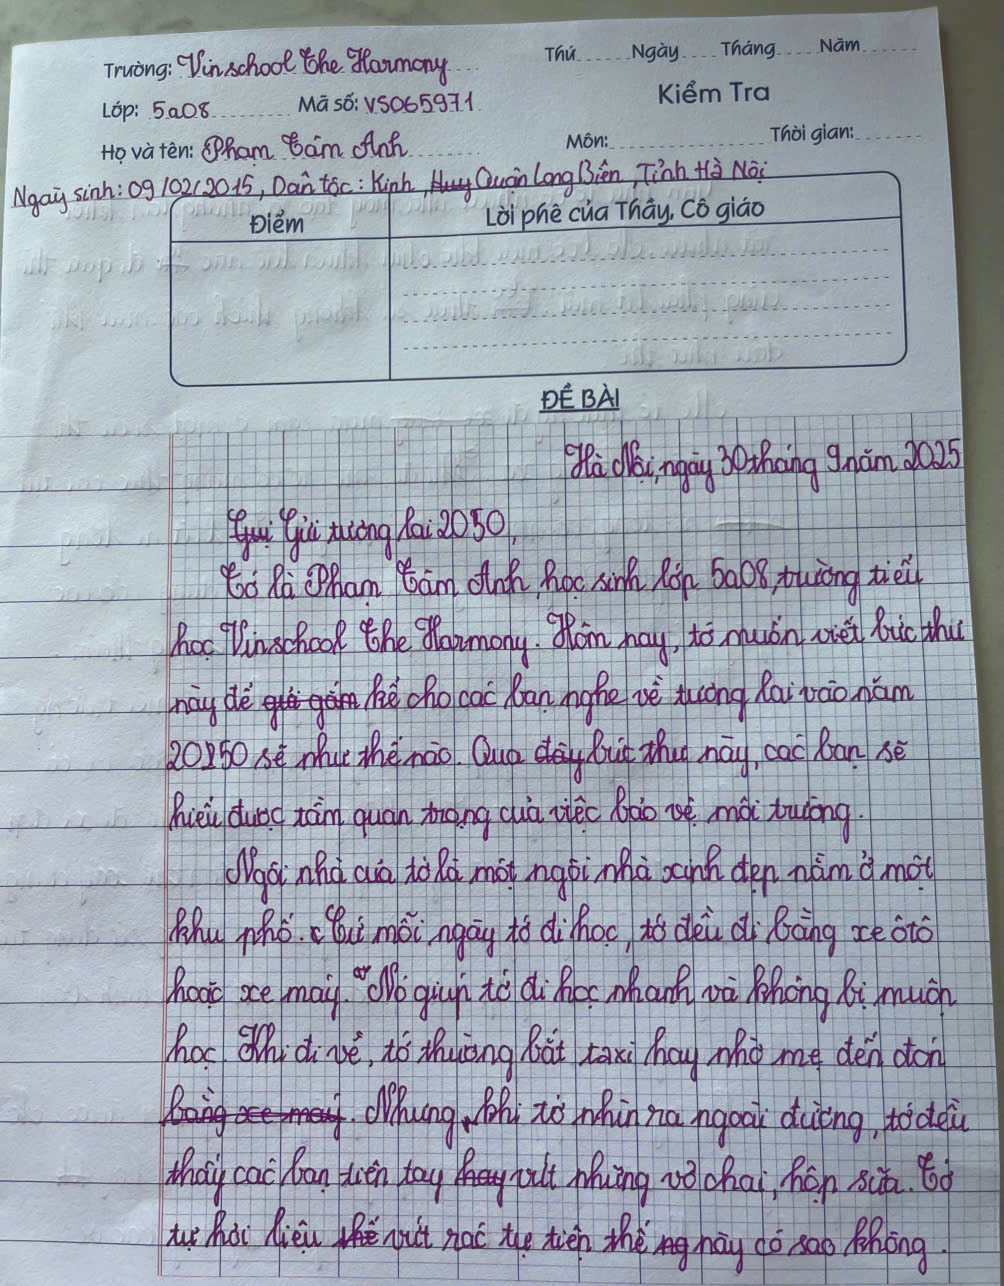 Trường: Vinschool The Harmony Thứ Ngày Tháng Năm
Lớp: 5a08 Mã số: VS065971 Kiểm Tra
Họ và tên: Phạm Tâm Anh Môn: Thời gian:
Ngày sinh: 09/02/2015, Dân tộc: Kinh, Huy Quận Long Biên, Tỉnh Hà Nội
Điểm Lời phê của Thầy, Cô giáo
ĐỀ BÀI
Hà Nội, ngày 30 tháng 9 năm 2025
Gửi tương lai 2050,
Tớ là Phạm Tâm Anh, học sinh lớp 5a08, trường tiểu
học Vinschool The Harmony. Hôm nay, tớ muốn viết bức thư
này để kể cho các bạn nghe về tương lai vào năm
2050 sẽ như thế nào. Qua bức thư này, các bạn sẽ
hiểu được tầm quan trọng của việc bảo vệ môi trường.
Ngôi nhà của tớ là một ngôi nhà xinh đẹp nằm ở một
khu phố. Cứ mỗi ngày tớ đi học, tớ đều đi bằng xe ôtô
hoặc xe máy. Nó giúp tớ đi học nhanh và không bị muộn
học. Khi đi về, tớ thường bắt taxi hay nhờ mẹ đến đón
bằng xe máy. Nhưng, khi tớ nhìn ra ngoài đường, tớ đều
thấy các bạn tiện tay hay vứt những vỏ chai, hộp sữa. Tớ
tự hỏi liệu thế vứt rác tự tiện thế ng này có sao không.